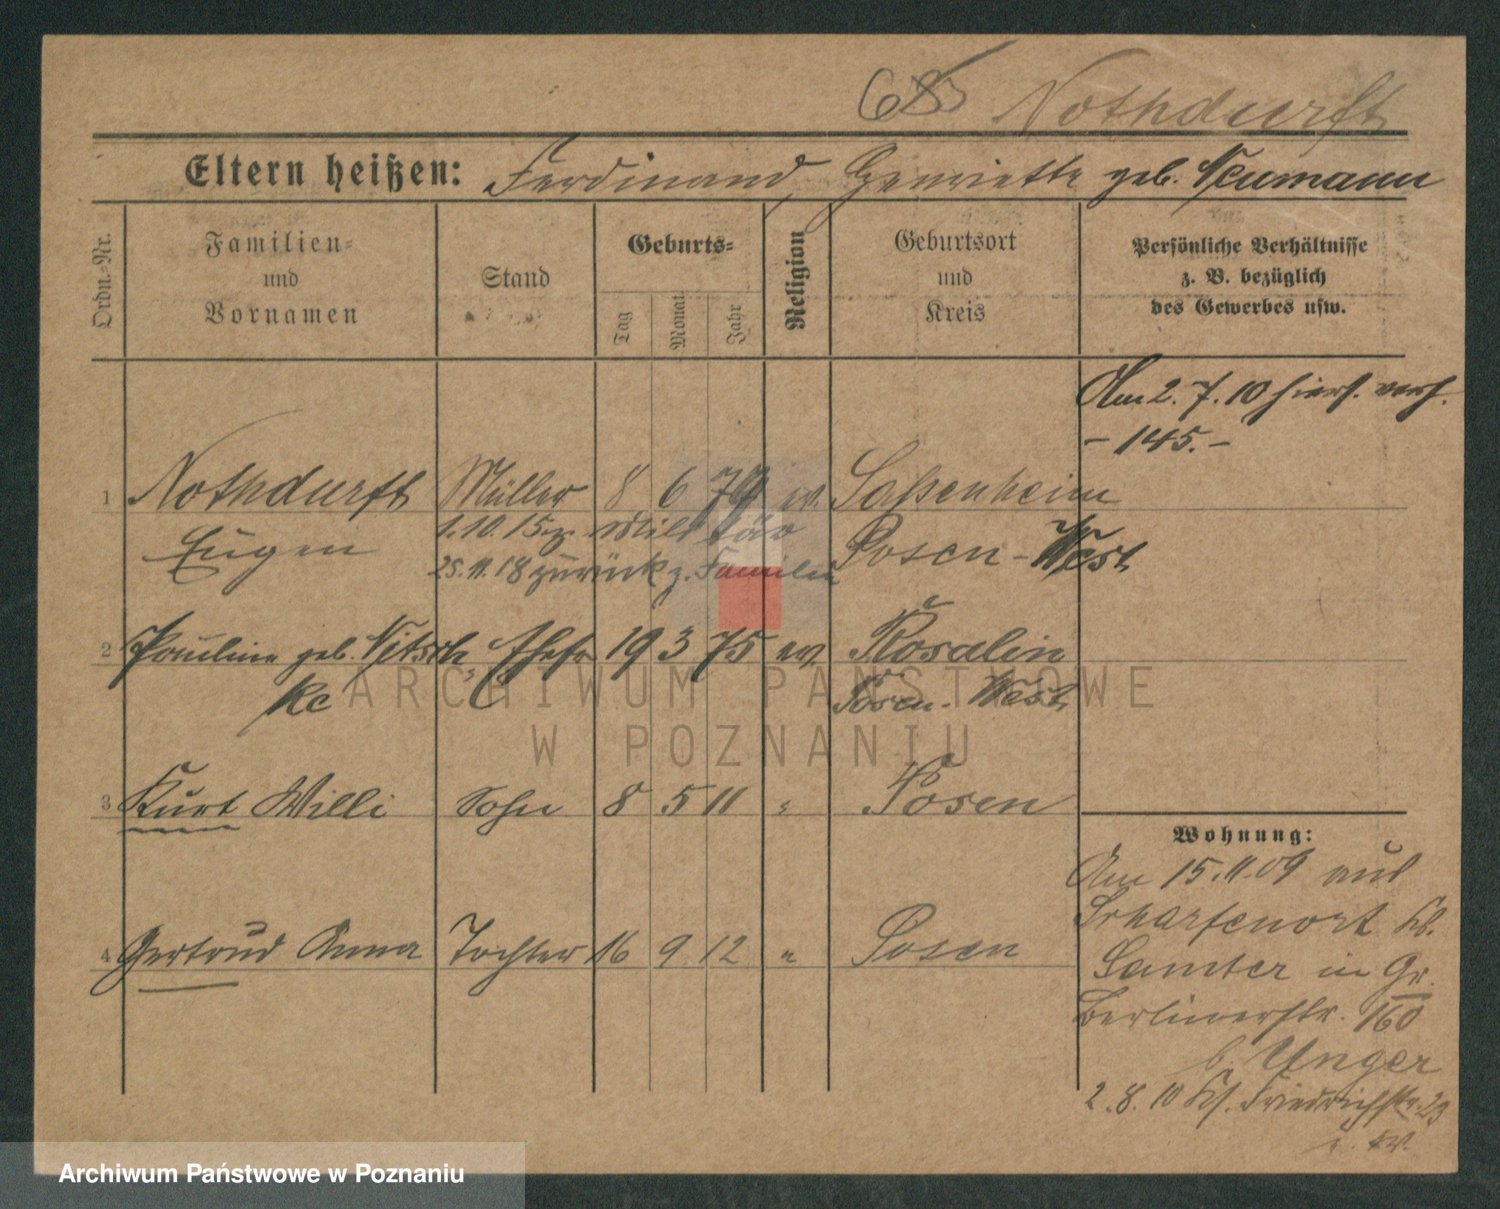 685 Nothdurft
Eltern heißen: Ferdinand, Henriette geb. Neumann
Ordn.-Nr.
Familien-
und
Vornamen
Stand
Geburts-
Tag
Monat
Jahr
Religion
Geburtsort
und
Kreis
Persönliche Verhältnisse
z. B. bezüglich
des Gewerbes usw.
Am 2. 7. 10 hiers. verh.
- 145. -
1 Nothdurft Müller 8 6 79 ev. Saßenheim
Eugen
1.10.15 z. Milit
25.11.18 zurück z. Familie
Posen-West
2 Pauline geb. Nitschke Ehefr 19 3 75 ev. Rosalin
Posen-West
3 Kurt Willi Sohn 8 5 11 " Posen
4 Gertrud Anna Tochter 16 9 12 " Posen
Wohnung:
Am 15.11.09 aus
Scharfenort Kr.
Samter in Gr.
Berlinerstr. 160
b. Unger
2.8.10 Friedrichstr. 23
ARCHIWUM PAŃSTWOWE
W POZNANIU
Archiwum Państwowe w Poznaniu